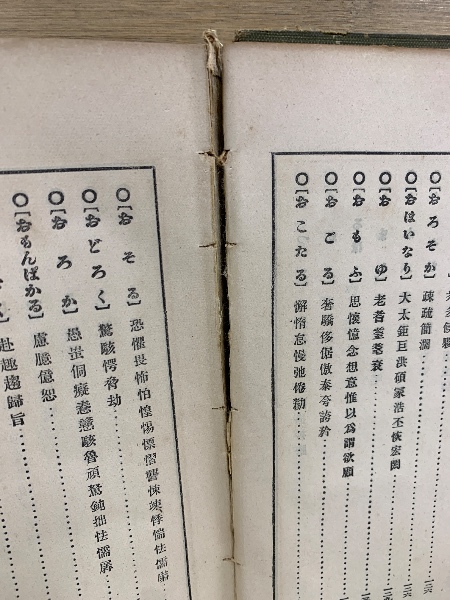 〇【おろそか】疎疏簡濶
〇【おほいなり】大太鉅巨洪碩冢浩丕恢宏閎
〇【お　ゆ】老耆耋耄衰
〇【おもふ】思懷憶念想意惟以爲謂欲願
〇【おごる】奢驕侈倨傲泰夸誇矜
〇【おこたる】懈惰怠慢弛倦勌
〇【おそる】恐懼畏怖怕惶惕慓慴讋悚竦悸惴怯懦
〇【おどろく】驚駭愕脅劫
〇【おろか】愚蚩侗癡惷戇騃魯頑駑鈍拙怯懦孱
〇【おもんぱかる】慮臆億恕
赴趣趨歸旨